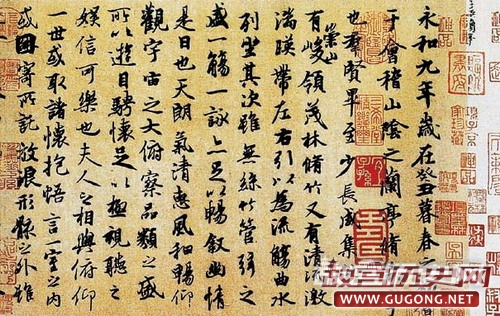 永和九年歲在癸丑暮春之
于會稽山陰之蘭亭脩
也羣賢畢至少長咸集
有崇山峻領茂林脩竹又有清流激
湍暎帶左右引以為流觴曲水
列坐其次雖無絲竹管弦之
盛一觴一詠亦足以暢敘幽情
是日也天朗氣清惠風和暢仰
觀宇宙之大俯察品類之盛
所以遊目騁懷足以極視聽之
娛信可樂也夫人之相與俯仰
一世或取諸懷抱悟言一室之內
或因寄所託放浪形骸之外雖
故宫历史网
WWW.GUGONG.NET